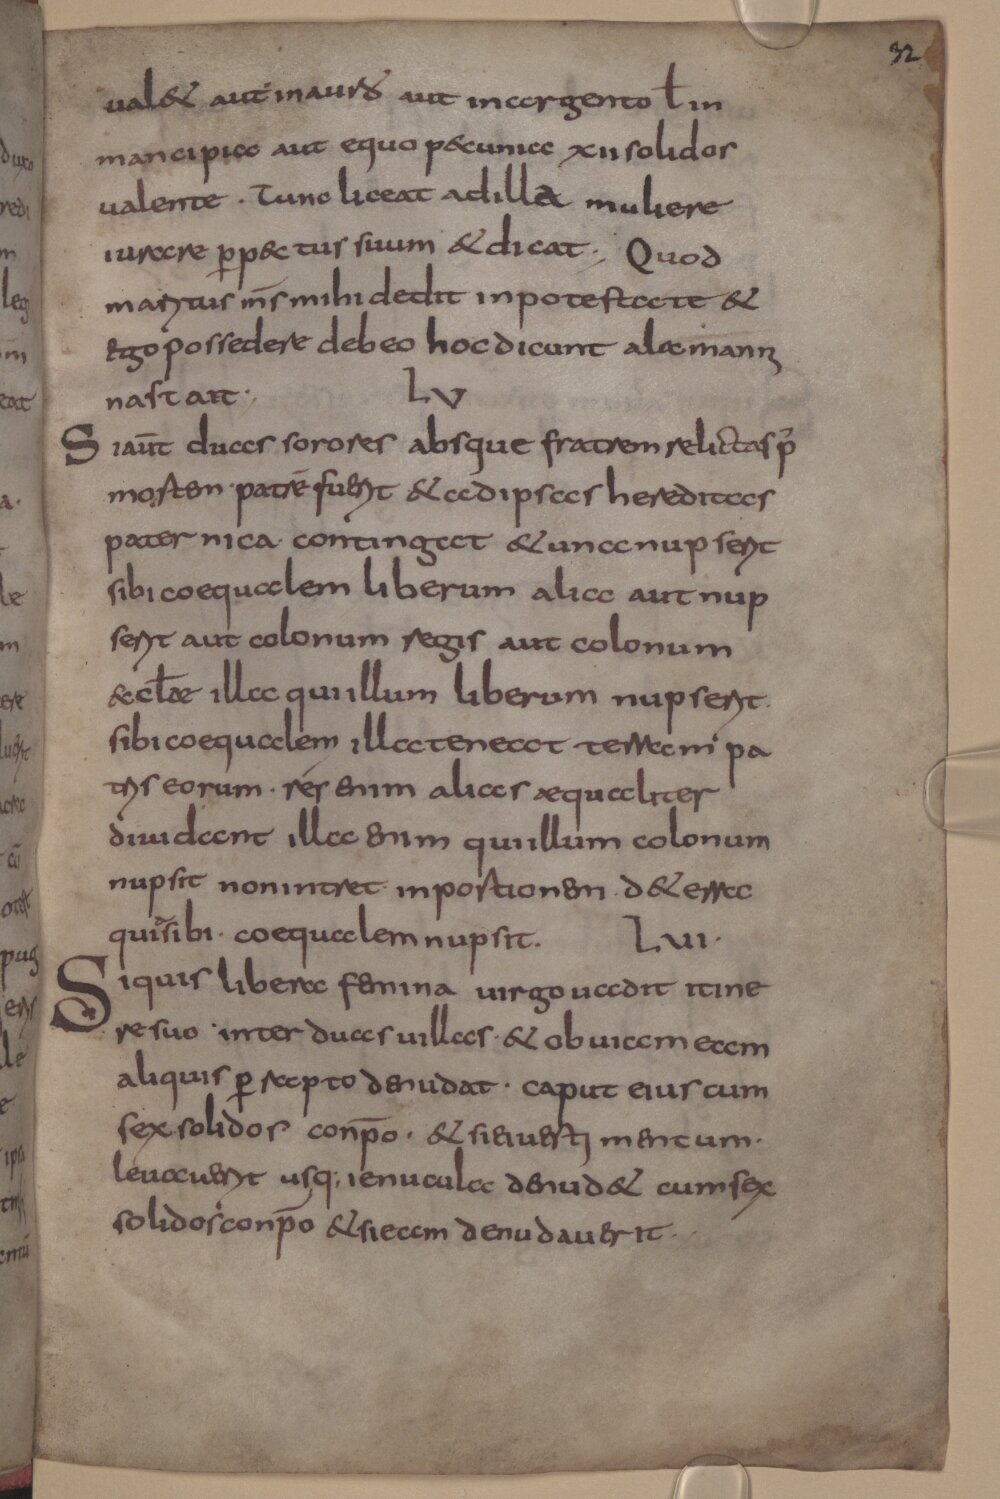 32
ual& aut in aurũ aut in argento ł in
mancipia aut equo p&cunia xii solidos
ualente · Tunc liceat ad illa muliere
iurare ꝑp&c tus suum & dicat ·, Quod
maritus m̄s mihi dedit in potestate &
ego possedere debeo hoc dicunt alaemanni
nastait ·,
LV
Si aūt duas sorores absque fratrem relictas p̄
mortem · patrē fuerit & ad ipsas hereditas
paternica contingat & una nupserit
sibi coequalem liberum alia aut nup
serit aut colonum regis aut colonum
ecłae illa qui illum liberum nupserit ·
sibi coequalem illa teneat terram pa
tris eorum · res enim alias aequaliter
diuidant illa enim qui illum colonum
nupsit non intret in portionem · d& erra
quia sibi · coequalem nupsit.
LVI ·
Si quis libera femina uirgo uadit itine
re suo · inter duas uillas · & obuiam eam
aliquis ꝑ rapto denudat · caput eius cum
sex solidos conp̄o · & si eiuesti mentum ·
leuauerit usq; ienucula denud& cum sex
solidos conp̄o & si eam denudauerit ·